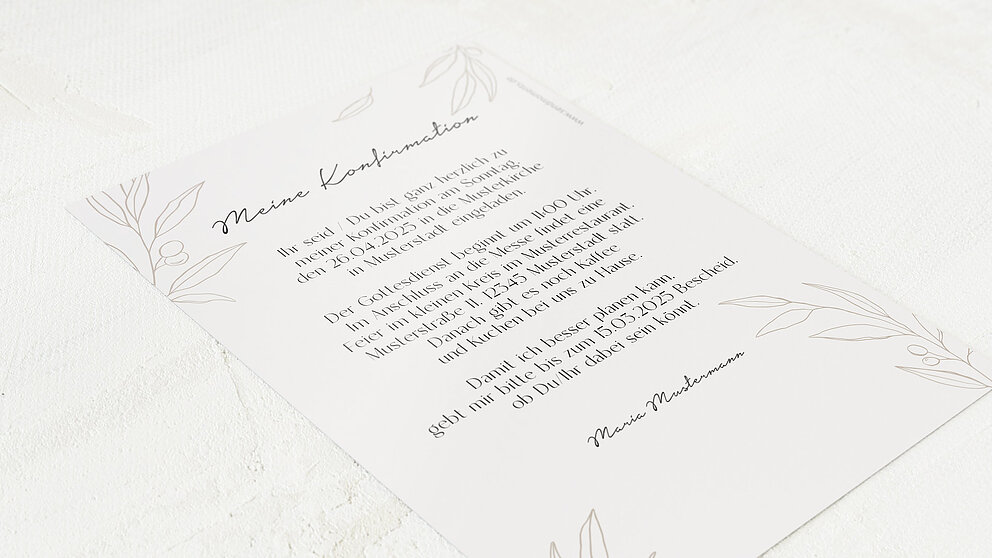 Meine Konfirmation
Ihr seid / Du bist ganz herzlich zu
meiner Konfirmation am Sonntag,
den 26.04.2025 in die Musterkirche
in Musterstadt eingeladen.
Der Gottesdienst beginnt um 11:00 Uhr.
Im Anschluss an die Messe findet eine
Feier im kleinen Kreis im Musterrestaurant,
Musterstraße 11, 12345 Musterstadt statt.
Danach gibt es noch Kaffee
und Kuchen bei uns zu Hause.
Damit ich besser planen kann,
gebt mir bitte bis zum 15.03.2025 Bescheid,
ob Du/Ihr dabei sein könnt.
Maria Mustermann